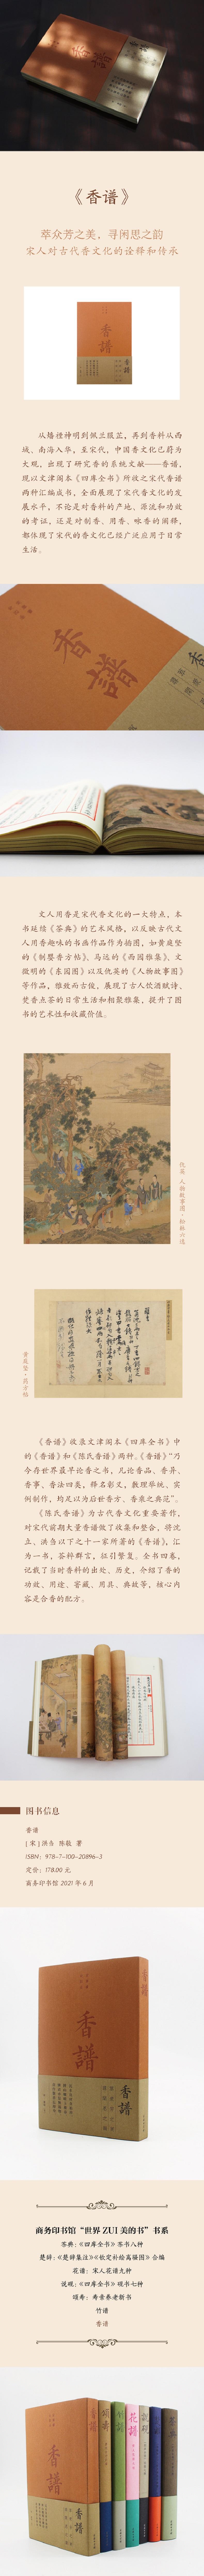 《香谱》
萃众芳之美，寻闲思之韵
宋人对古代香文化的诠释和传承
香譜
从燔柴神明到佩兰缀芷，再到香料从西
域、南海入华，至宋代，中国香文化已蔚为
大观，出现了研究香的系统文献——香谱，
现以文津阁本《四库全书》所收之宋代香谱
两种汇编成书，全面展现了宋代香文化的发
展水平，不论是对香料的产地、源流和功效
的考证，还是对制香、用香、咏香的阐释，
都体现了宋代的香文化已经广泛应用于日常
生活。
香譜
文人用香是宋代香文化的一大特点，本
书延续《茶典》的艺术风格，以反映古代文
人用香趣味的书画作品作为插图，如黄庭坚
的《制婴香方帖》、马远的《西园雅集》、文
徵明的《东园图》以及仇英的《人物故事图》
等作品，雅致而古傲，展现了古人饮酒赋诗、
焚香点茶的日常生活和相聚雅集，提升了图
书的艺术性和收藏价值。
仇英·人物故事图·松林六逸
《香谱》收录文津阁本《四库全书》中
的《香谱》和《陈氏香谱》两种。《香谱》“乃
今存世最早论香之书，凡论香品、香异、
香事、香法四类，释名彰义，数理举统，实
例制作，均足以为后世香方、香录之典范”。
《陈氏香谱》为古代香文化重要著作，
对宋代前期大量香谱做了收集和整合，将沈
立、洪刍以下之十一家所著的《香谱》，汇
为一书，荟粹群言，征引繁复。全书四卷，
记载了当时香料的出处、历史，介绍了香的
功效、用途、窨藏、用具、典故等，核心内
容是合香的配方。
图书信息
香谱
[ 宋 ] 洪刍 陈敬 著
ISBN：978-7-100-20896-3
定价：178.00 元
商务印书馆 2021 年 6 月
香譜
香譜
香譜
商务印书馆“世界 ZUI 美的书”书系
茶典：《四库全书》茶书八种
楚辞：《楚辞集注》《钦定补绘离骚图》合编
花谱：宋人花谱九种
说砚：《四库全书》砚书七种
颂寿：寿亲养老新书
竹谱
香谱
香譜
香譜
頌壽
竹譜
花譜
說硯